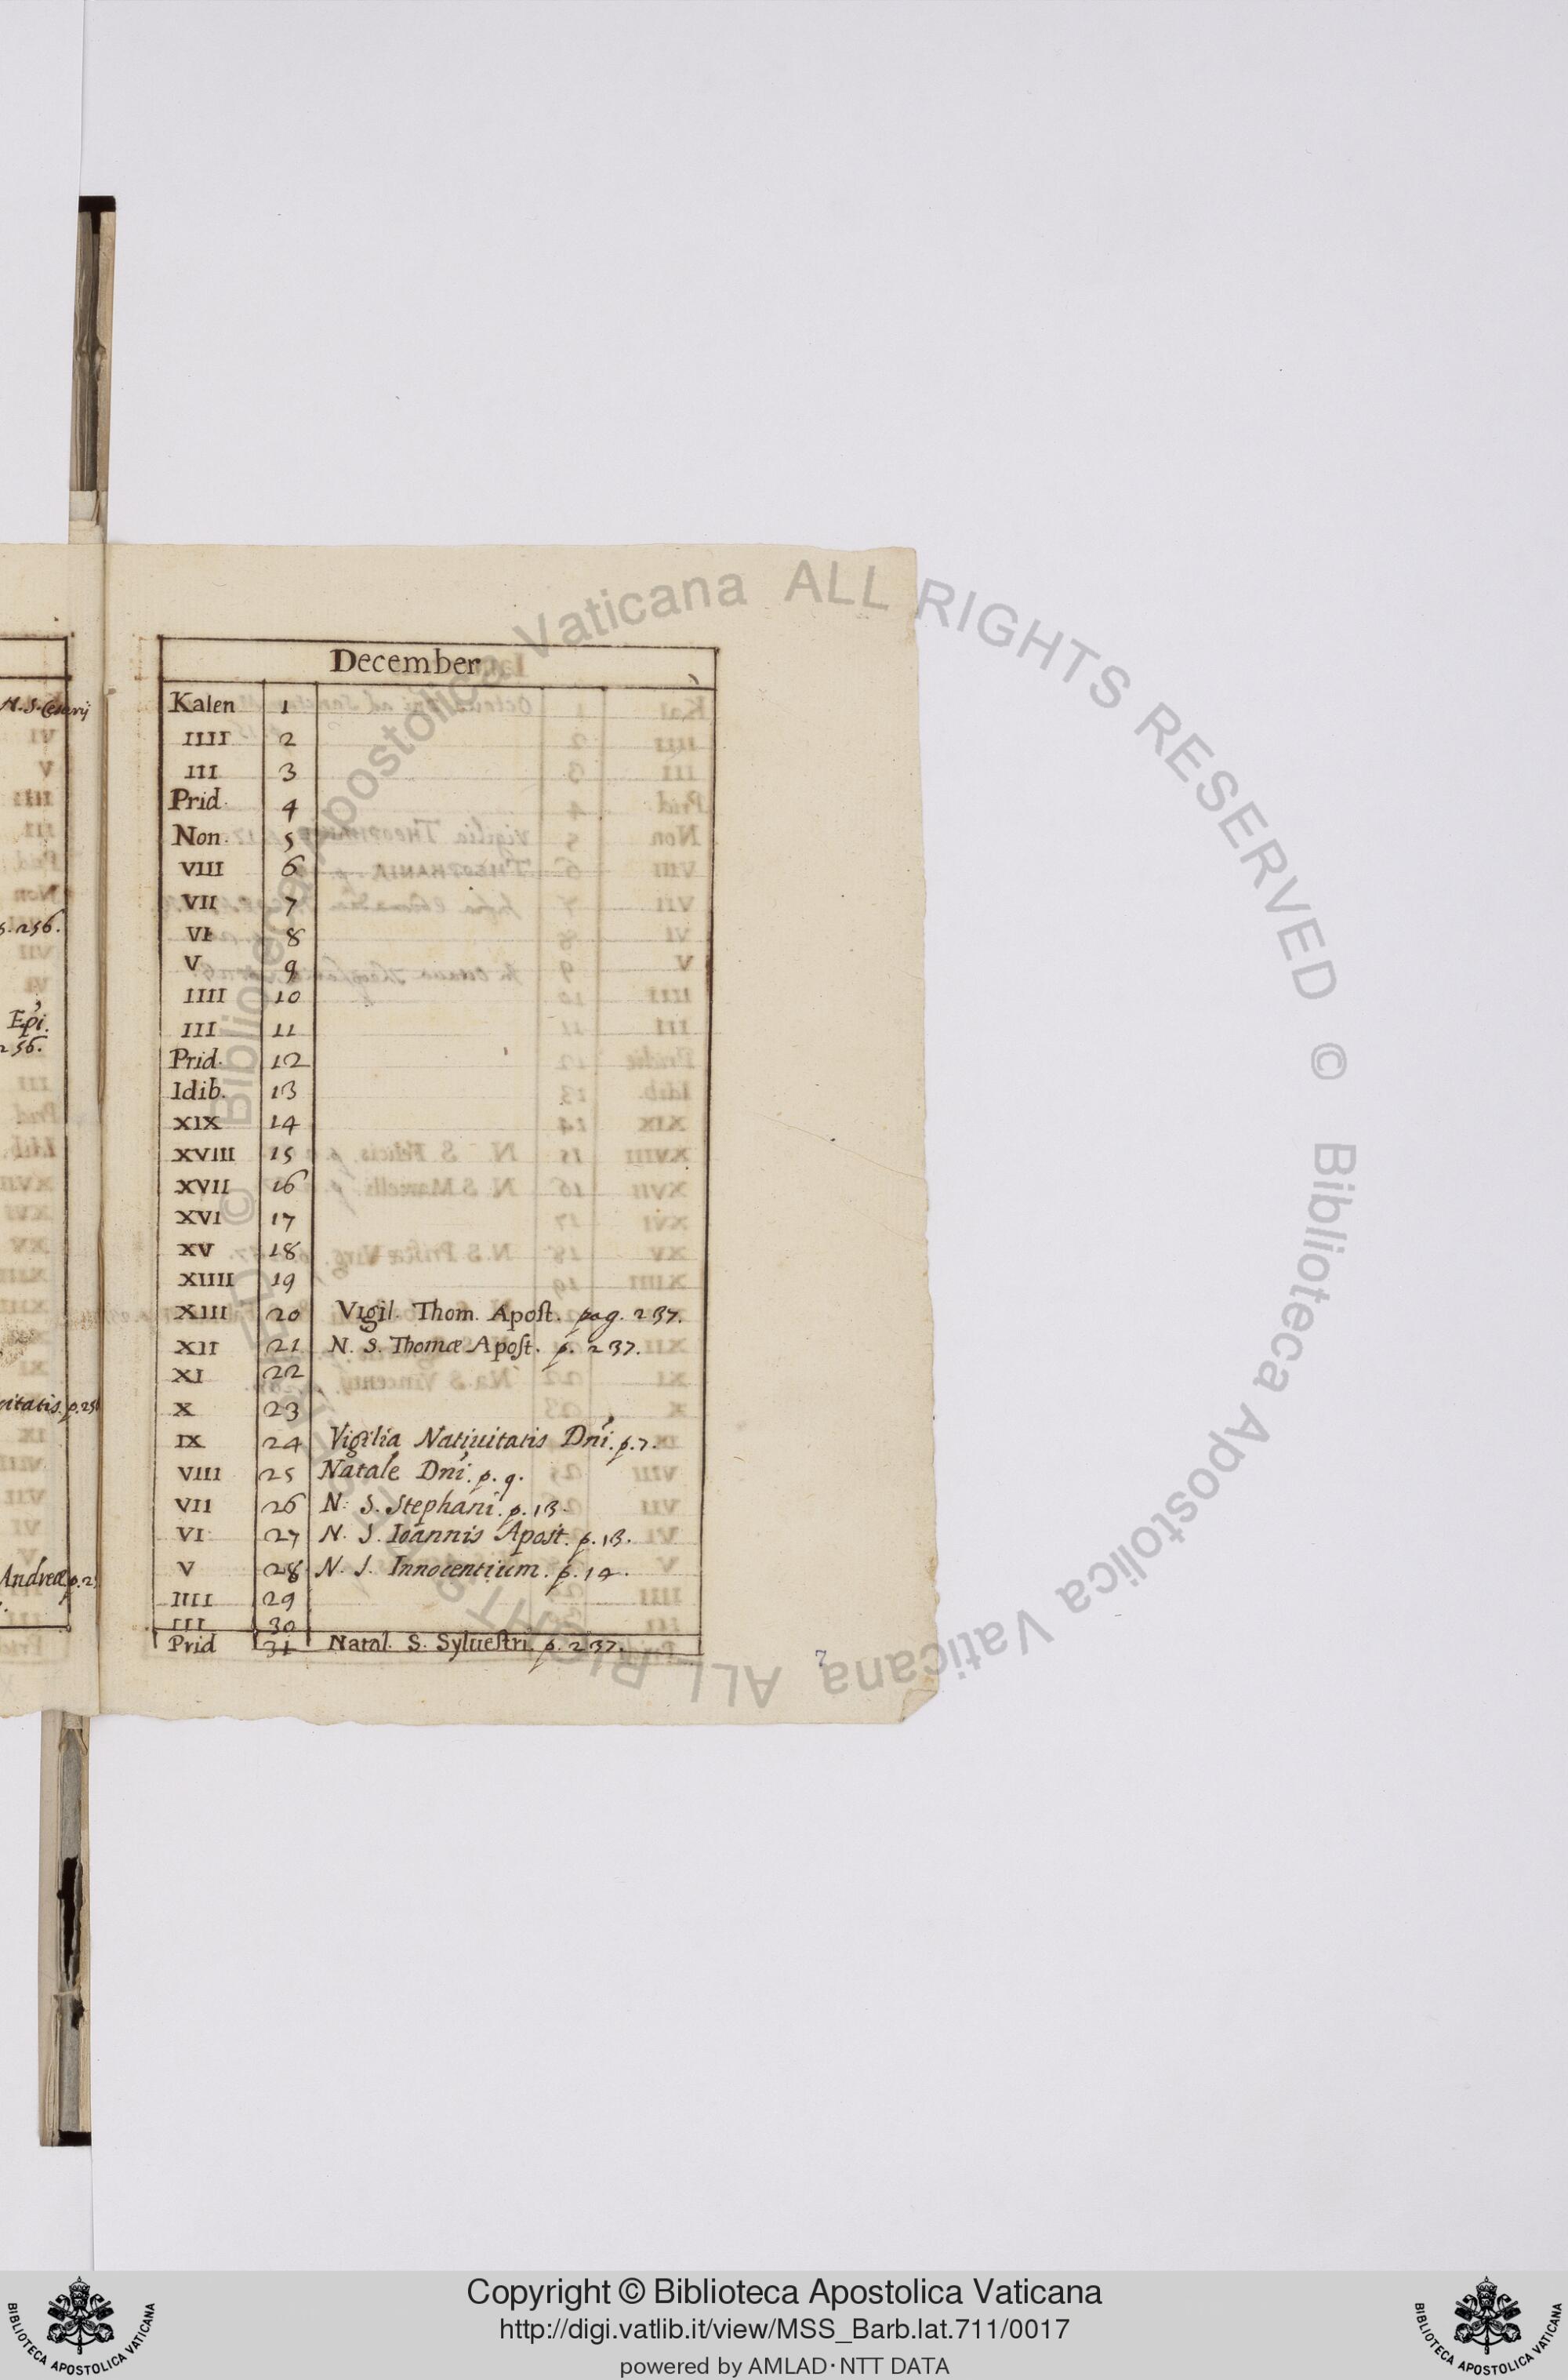 December
Kalen 1
IIII 2
III 3
Prid. 4
Non. 5
VIII 6
VII 7
VI 8
V 9
IIII 10
III 11
Prid. 12
Idib. 13
XIX 14
XVIII 15
XVII 16
XVI 17
XV 18
XIIII 19
XIII 20 Vigil. Thom. Apost. pag. 237.
XII 21 N. S. Thomæ Apost. p. 237.
XI 22
X 23
IX 24 Vigilia Natiuitatis Dni. p. 7.
VIII 25 Natale Dni. p. 9.
VII 26 N. S. Stephani. p. 13.
VI 27 N. S. Ioannis Apost. p. 13.
V 28 N. S. Innocentium. p. 14.
IIII 29
III 30
Prid 31 Natal. S. Syluestri. p. 237.
7
N. S. Cesarij
256.
Epi.
256.
Andreæ
© Biblioteca Apostolica Vaticana ALL RIGHTS RESERVED © Biblioteca Apostolica Vaticana ALL RIGHTS RESERVED
Copyright © Biblioteca Apostolica Vaticana
http://digi.vatlib.it/view/MSS_Barb.lat.711/0017
powered by AMLAD·NTT DATA
BIBLIOTECA APOSTOLICA VATICANA
BIBLIOTECA APOSTOLICA VATICANA